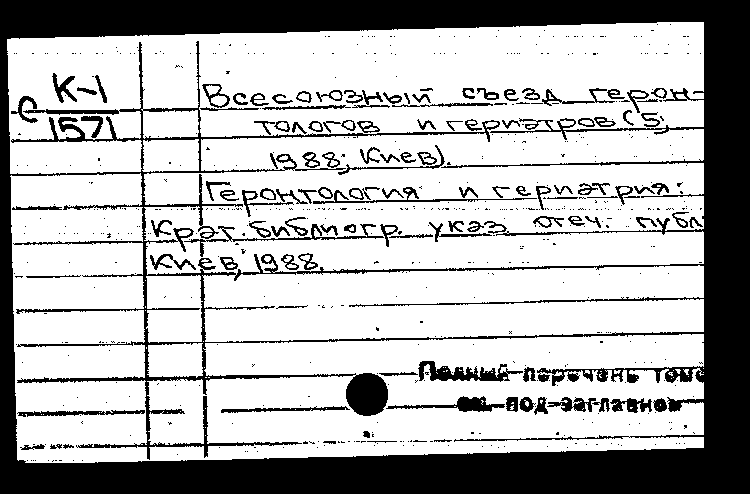 К-1
С
1571
Всесоюзный съезд герон-
тологов и гериатров (5;
1988; Киев).
Геронтология и гериатрия:
Крат. библиогр. указ. отеч. публ
Киев, 1988.
Полный перечень томо
см. под заглавием